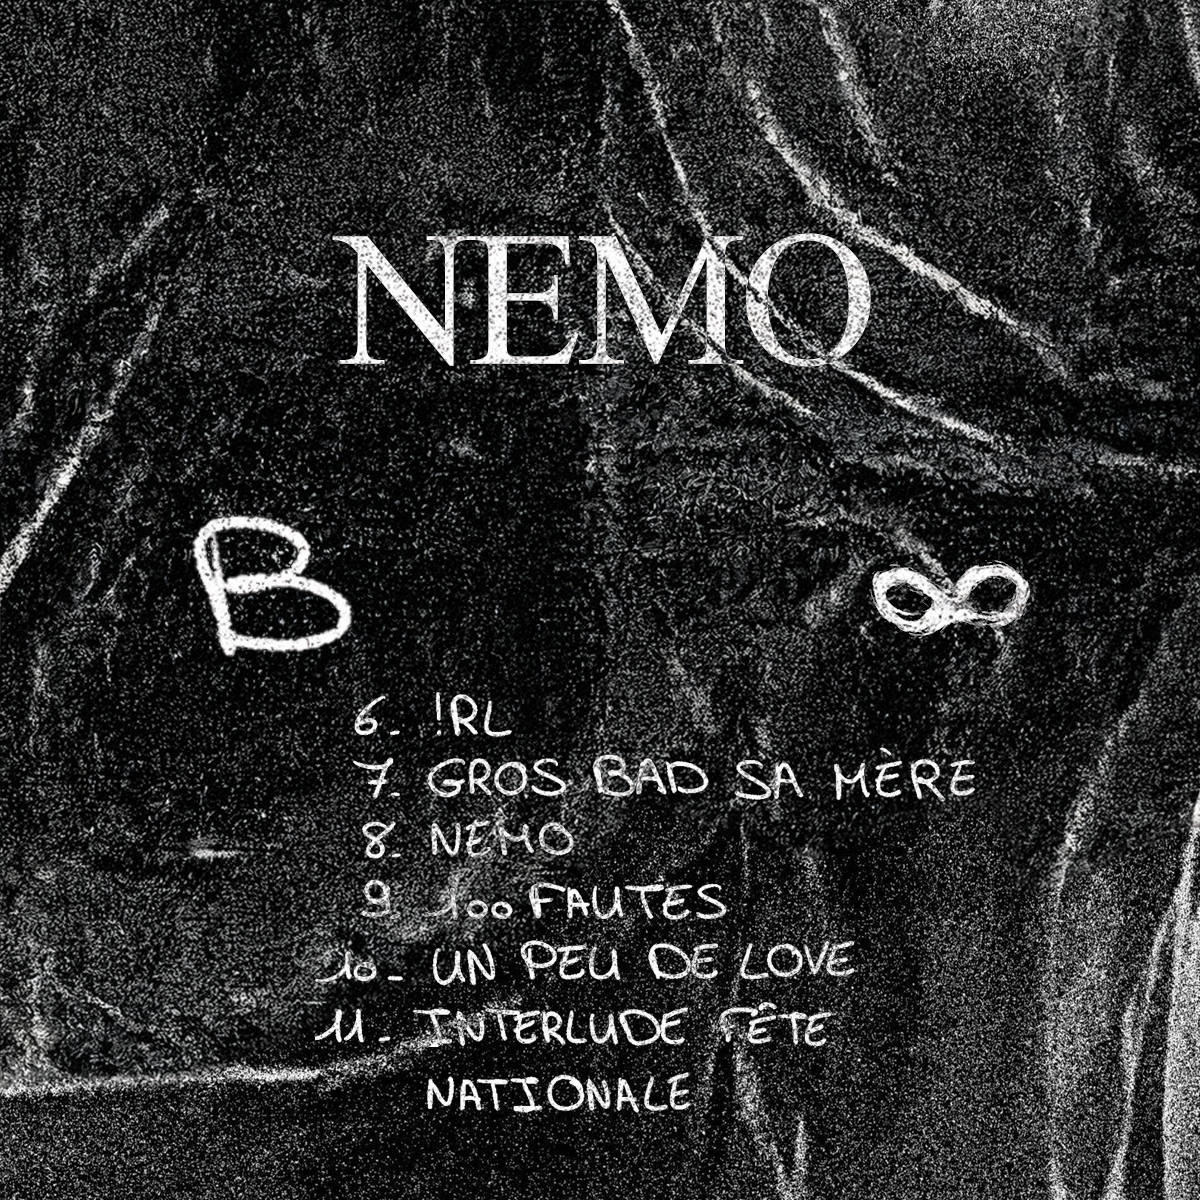 NEMO
B ∞
6_ !RL
7_ GROS BAD SA MÈRE
8_ NEMO
9_ 100 FAUTES
10_ UN PEU DE LOVE
11_ INTERLUDE FÊTE
NATIONALE